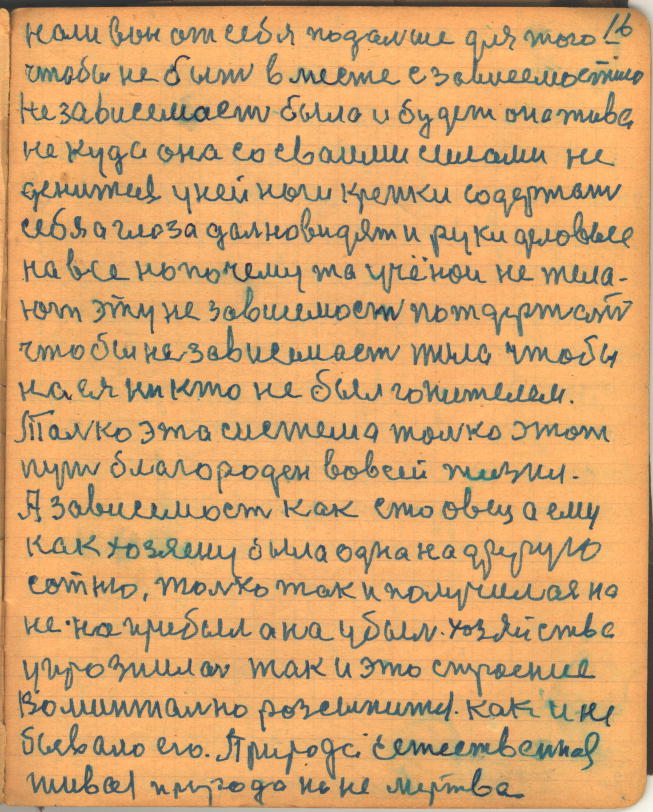 нали вон от себя подальше для того 16
чтобы не быт вместе с зависемостию
Независемаст была и будет она жива
не куда она со сваими силами не
денится у ней ноги крепки содержат
себя а глаза далновидят и руки деловые
на все но почему та учёнои не жела-
ют эту не зависемост потдержат
чтобы независемаст жила чтобы
на ея никто не был гонителем.
Талко эта система толко этот
пут благороден вовсей жизни.
А зависемост как сто овец а ему
как хозяену была одна на другую
сотню, толко так и получилая на
не на прибыл а на убыл. хозяйства
угрозила так и это строение
Воминтално розсыпится. как и не
бывало его. Природа естественная
живая природа но не мертва